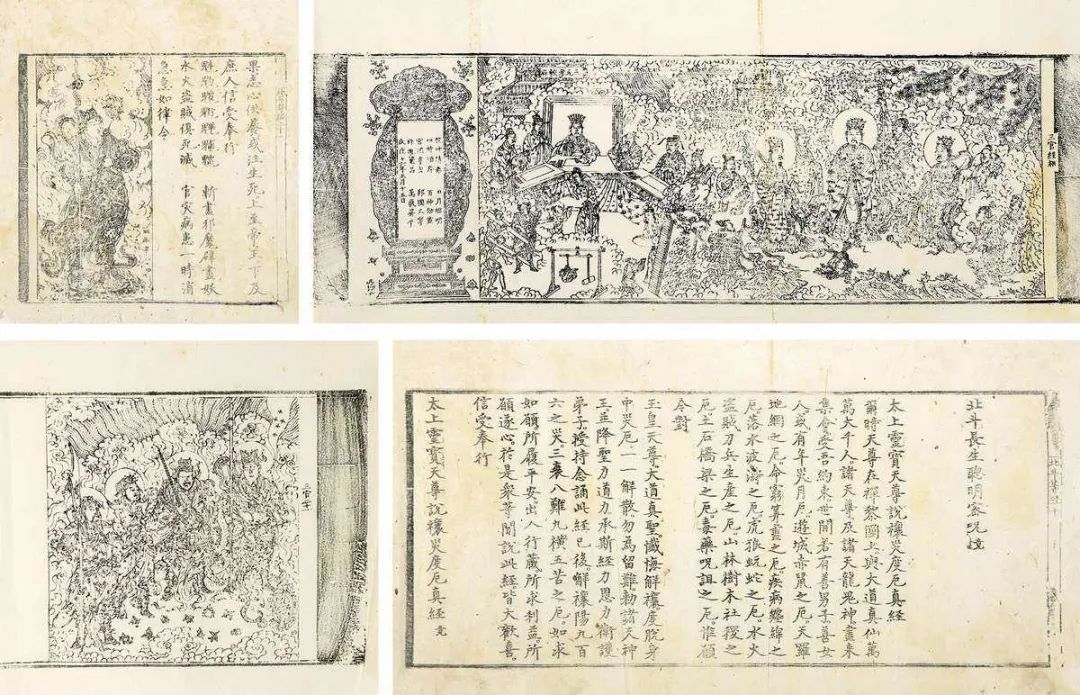 果志心供養或注生死上至帝王下及
庶人信受奉行
斬盡邪魔辟盡妖
水火盗賊俱死滅　官灾病患一時消
急急如律令
三官經
三官十
北斗長生聰明密呪竟
太上靈寶天尊說禳灾度厄真經
爾時天尊在禪黎國土與大道真仙萬
萬大千人諸天尊及諸天龍鬼神盡來
集會受吾約束世間若有善男子善女
人或有年灾月厄遊城赤鼠之厄天羅
地網之厄命窮筭盡之厄疾病纏綿之
厄落水波濤之厄虎狼蚖蛇之厄水火
盗賊刀兵生産之厄山林樹木社稷之
厄土石橋梁之厄毒藥呪詛之厄惟願
今對
玉皇天尊大道真聖懺悔解禳度脫身
中灾厄一一解散勿為留難勑諸天神
王並降聖力道力承斯經力恩力衛護
弟子授持念誦此經已後解禳陽九百
六之灾三衰八難九横五苦之厄如求
如願所履平安出入行藏所求利益所
願遂心於是衆等聞說此經皆大歡喜
信受奉行
太上靈寶天尊說禳灾度厄真經 竟